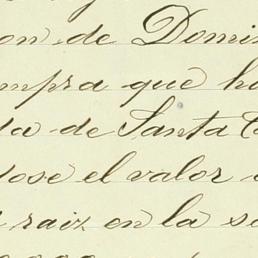 on de Domin
mpra que ha
ta de Santa C
dose el valor
raiz en la se